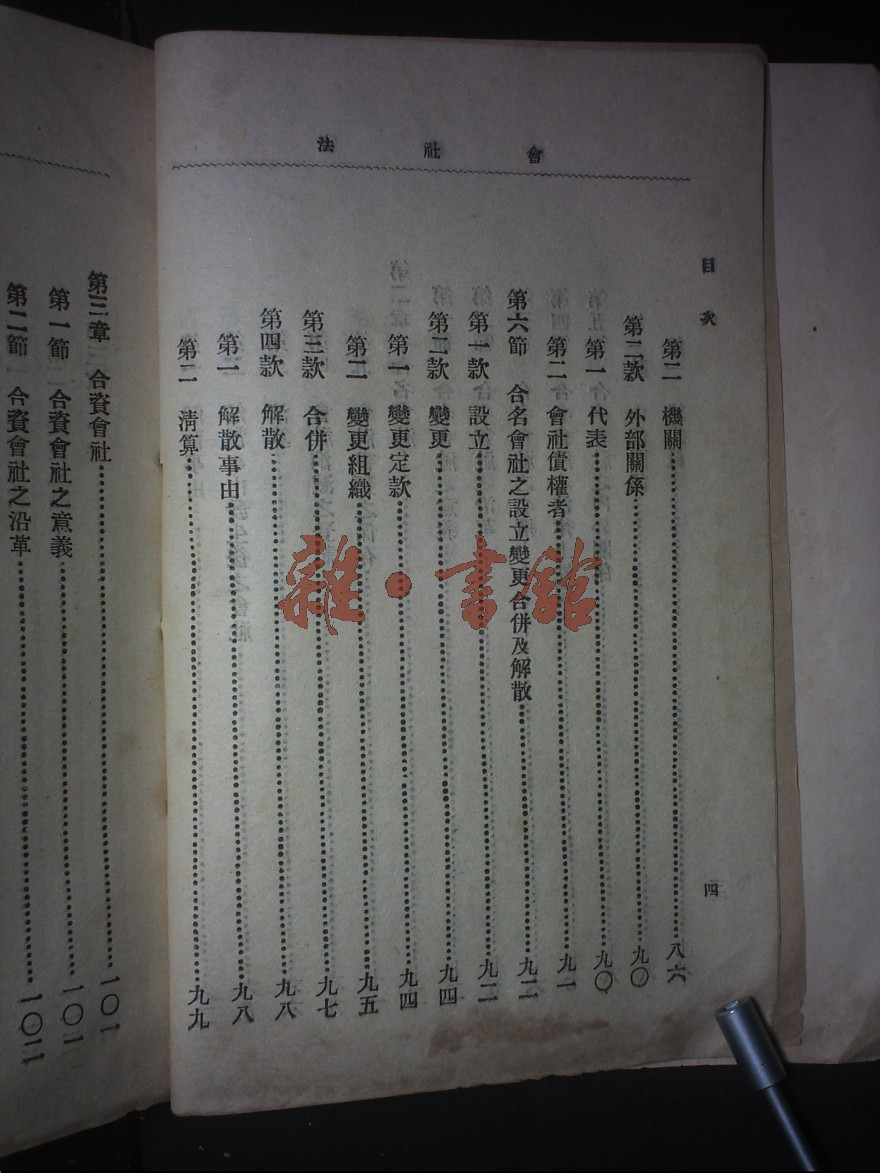 會社法
目次
四
第二 機關 八六
第二款 外部關係 九〇
第一 代表 九〇
第二 會社債權者 九一
第六節 合名會社之設立變更合併及解散 九二
第一款 設立 九二
第二款 變更 九四
第一 變更定款 九四
第二 變更組織 九五
第三款 合併 九七
第四款 解散 九八
第一 解散事由 九八
第二 淸算 九九
第三章 合資會社 一〇一
第一節 合資會社之意義 一〇二
第二節 合資會社之沿革 一〇二
雜·書館